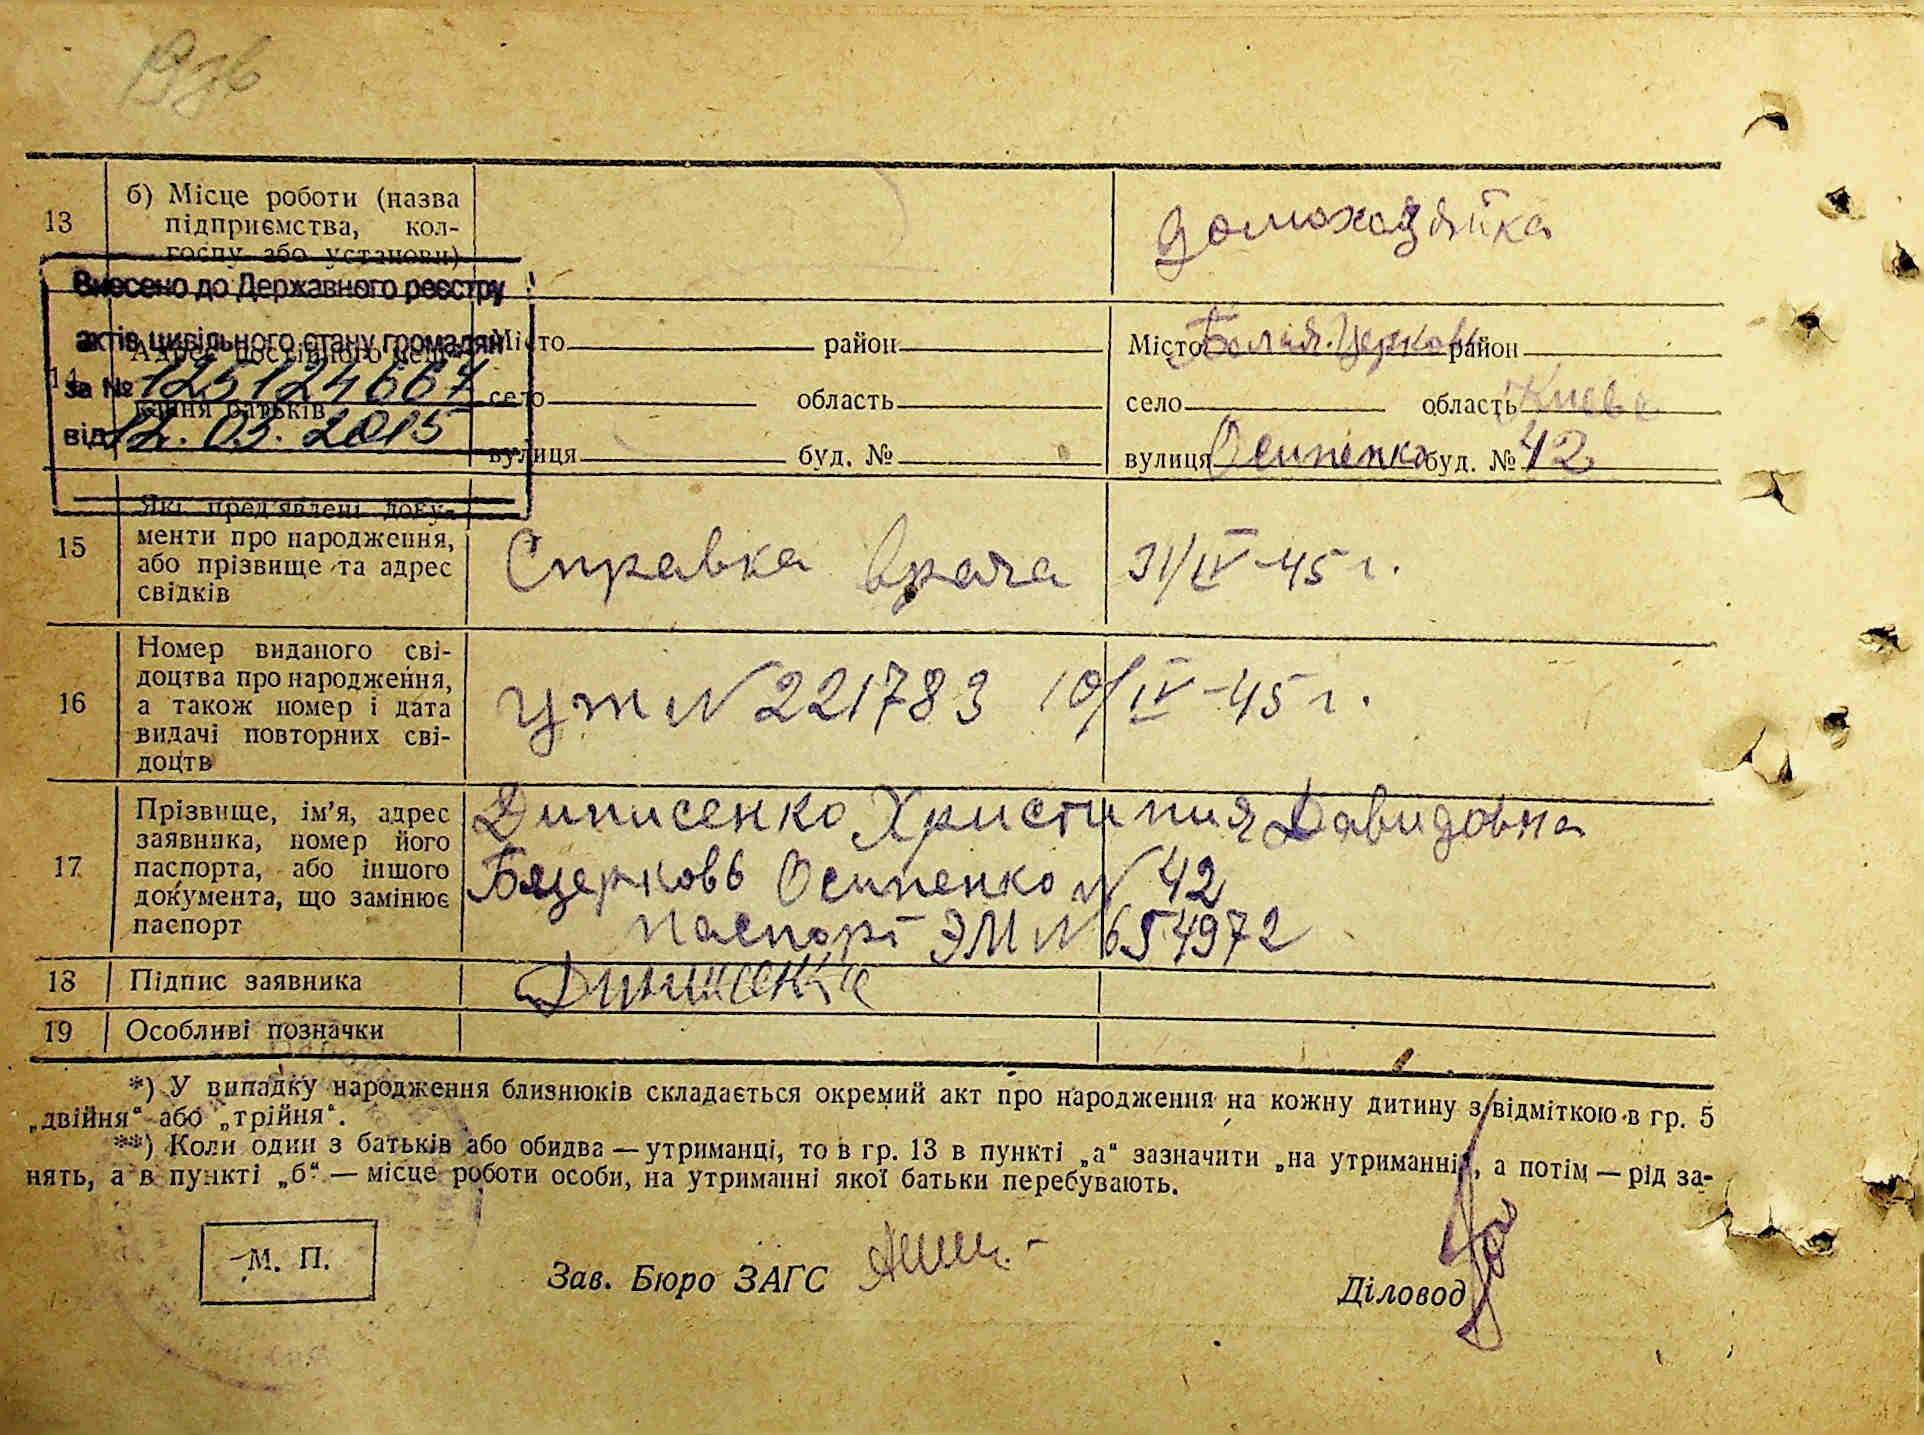 13
б) Місце роботи (назва
підприємства, кол-
госпу або установи)
домохозяйка
Внесено до Державного реєстру
актів цивільного стану громадян
за № 125124667
від 12.03.2015
Місто район
село область
вулиця буд. №
Місто Белая-Церковь район
село область Киевс
вулиця Осипенко буд. № 42
15
Які пред'явлені доку-
менти про народження,
або прізвище та адрес
свідків
Справка врача 31/IV-45 г.
16
Номер виданого сві-
доцтва про народження,
а також номер і дата
видачі повторних сві-
доцтв
УЖ N 221783 10/IV-45 г.
17
Прізвище, ім'я, адрес
заявника, номер його
паспорта, або іншого
документа, що замінює
паспорт
Динисенко Христиния Давидовна
Бяцерковь Осипенко N 42
паспорт ЭМ N 654972
18 Підпис заявника
19 Особливі позначки
*) У випадку народження близнюків складається окремий акт про народження на кожну дитину з відміткою в гр. 5
„двійня" або „трійня".
**) Коли один з батьків або обидва — утриманці, то в гр. 13 в пункті „а" зазначити „на утриманні", а потім — рід за-
нять, а в пункті „б" — місце роботи особи, на утриманні якої батьки перебувають.
М. П.
Зав. Бюро ЗАГС
Діловод